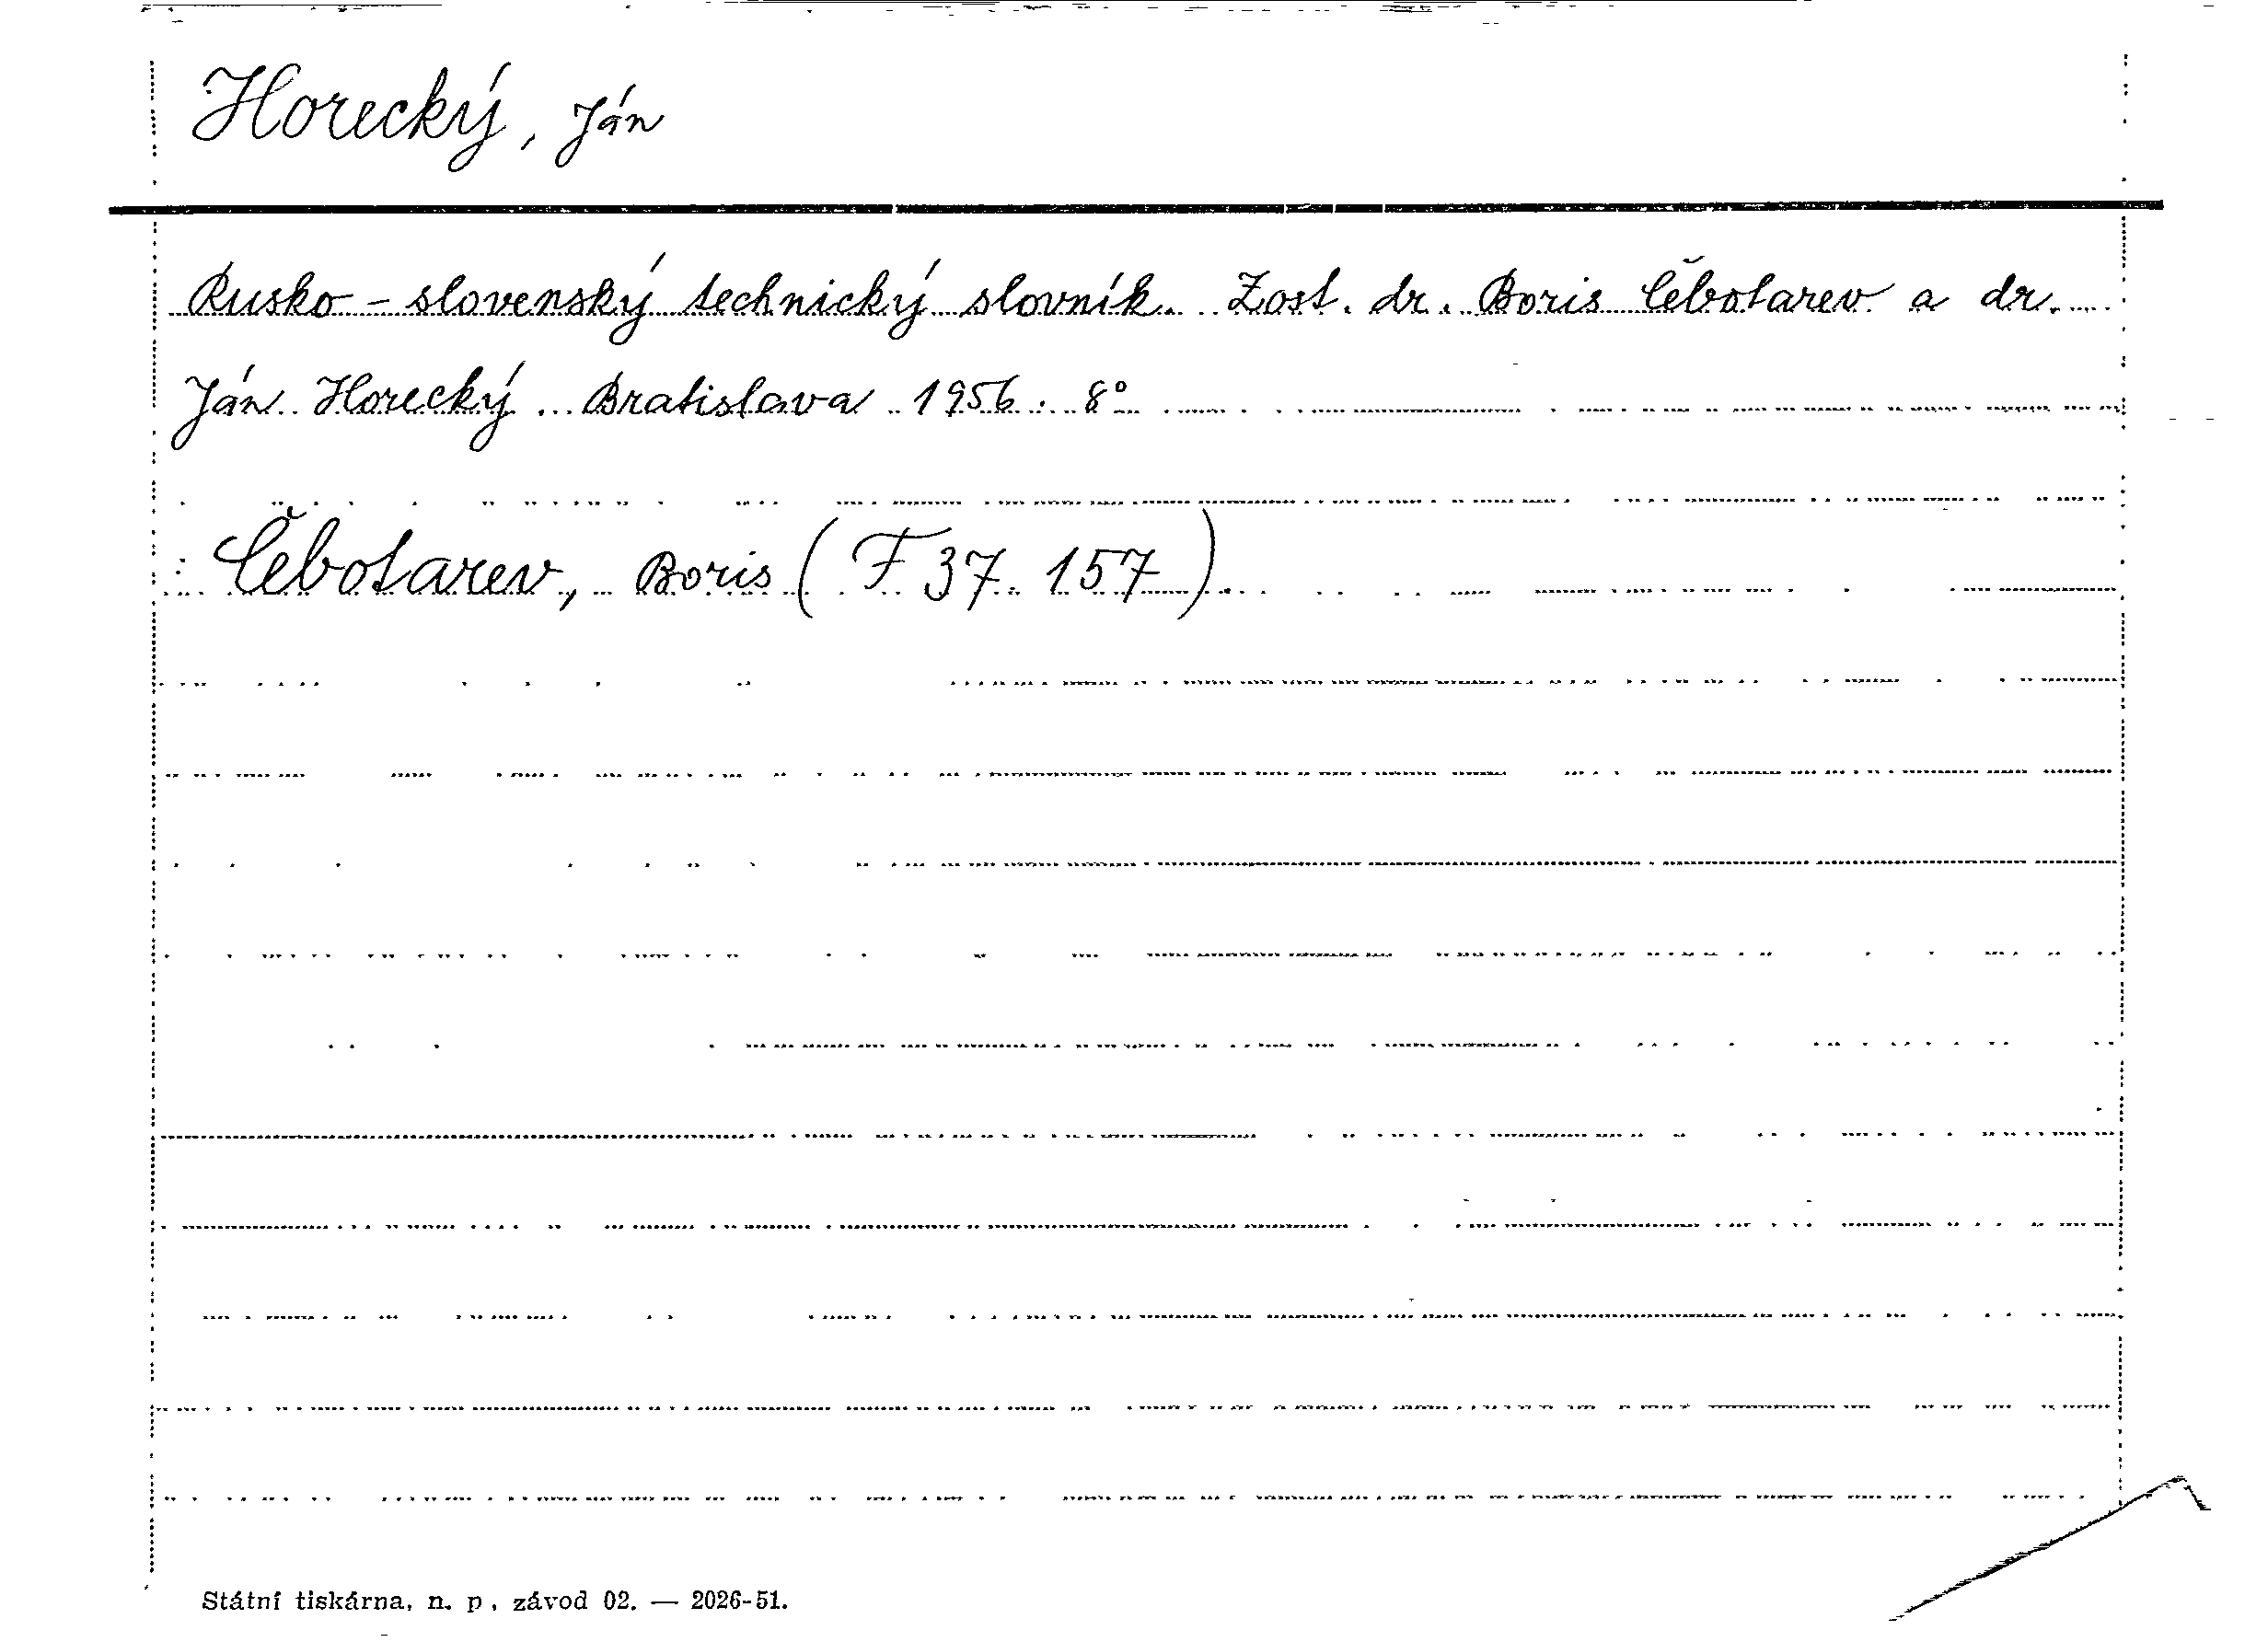 Horecký, Ján
Rusko-slovenský technický slovník. Zost. dr. Boris Čebotarev a dr.
Ján Horecký. Bratislava 1956. 8°
Čebotarev, Boris (F 37.157)
Státní tiskárna, n. p., závod 02. — 2026-51.